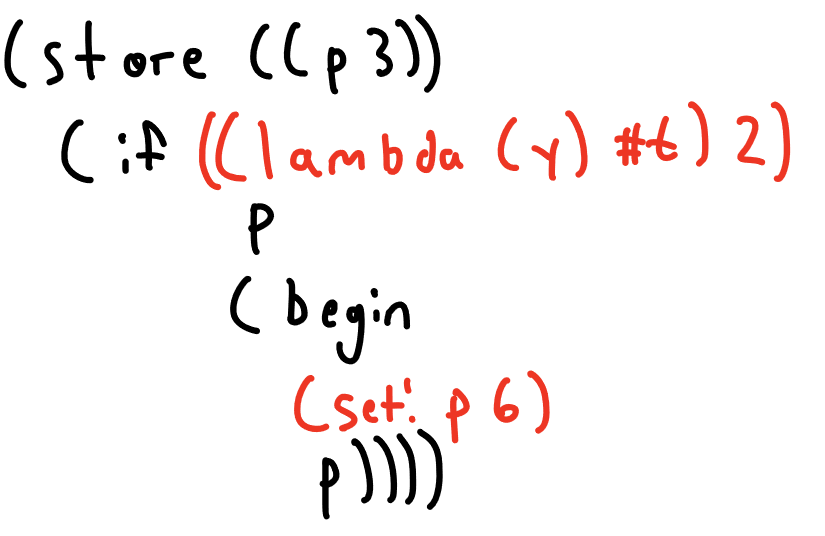 (store ((p 3))
(if ((lambda (y) #t) 2)
p
(begin
(set! p 6)
p))))